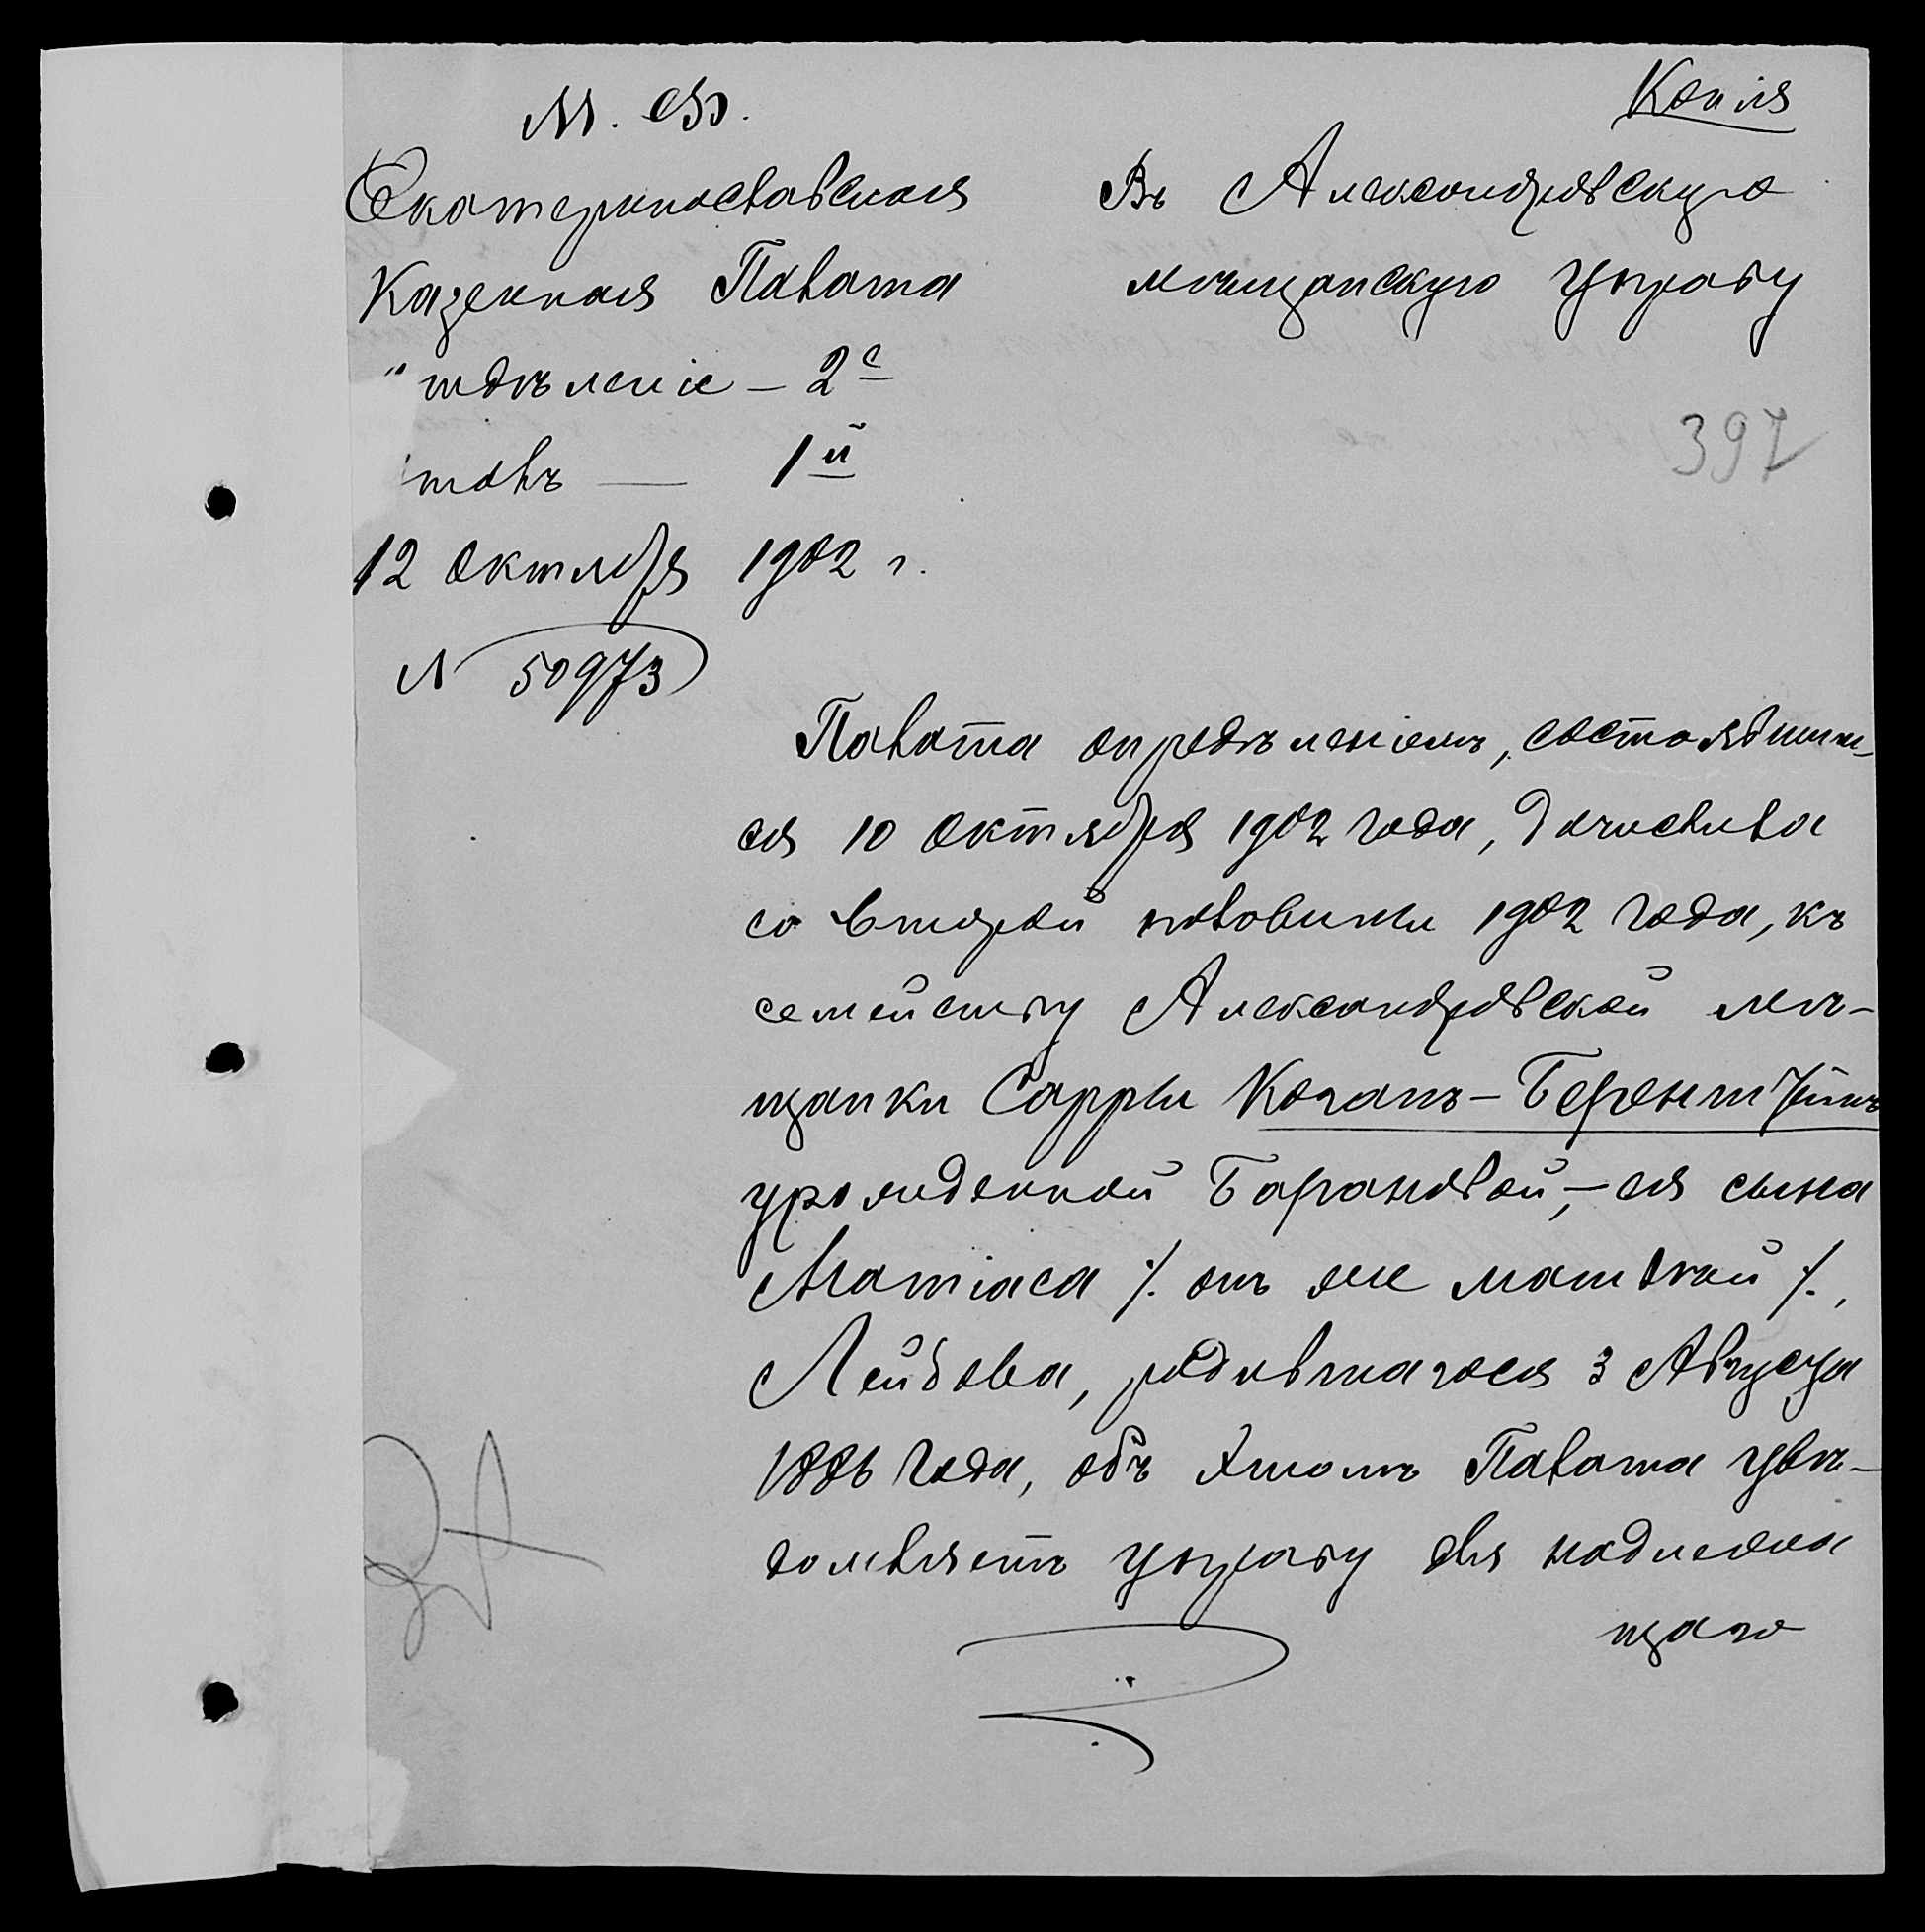 Копія
М. Ф.
Екатеринославская
Казенная Палата
тдѣленіе — 2е
толъ — 1й
12 Октября 1902 г.
N 50973
Въ Александровскую
мѣщанскую Управу
397
Палата опредѣленіемъ, состоявшим-
ся 10 Октября 1902 года, дочислила
со второй половины 1902 года, къ
семейству Александровской мѣ-
щанки Сарры Коганъ-Беренштейнъ
урожденной Барановой, — ея сына
Матіаса /. онъ же Матвѣй /.,
Лейбова, родившагося 3 Августа
1886 года, объ этомъ Палата увѣ-
домляетъ Управу для надлежа
щаго